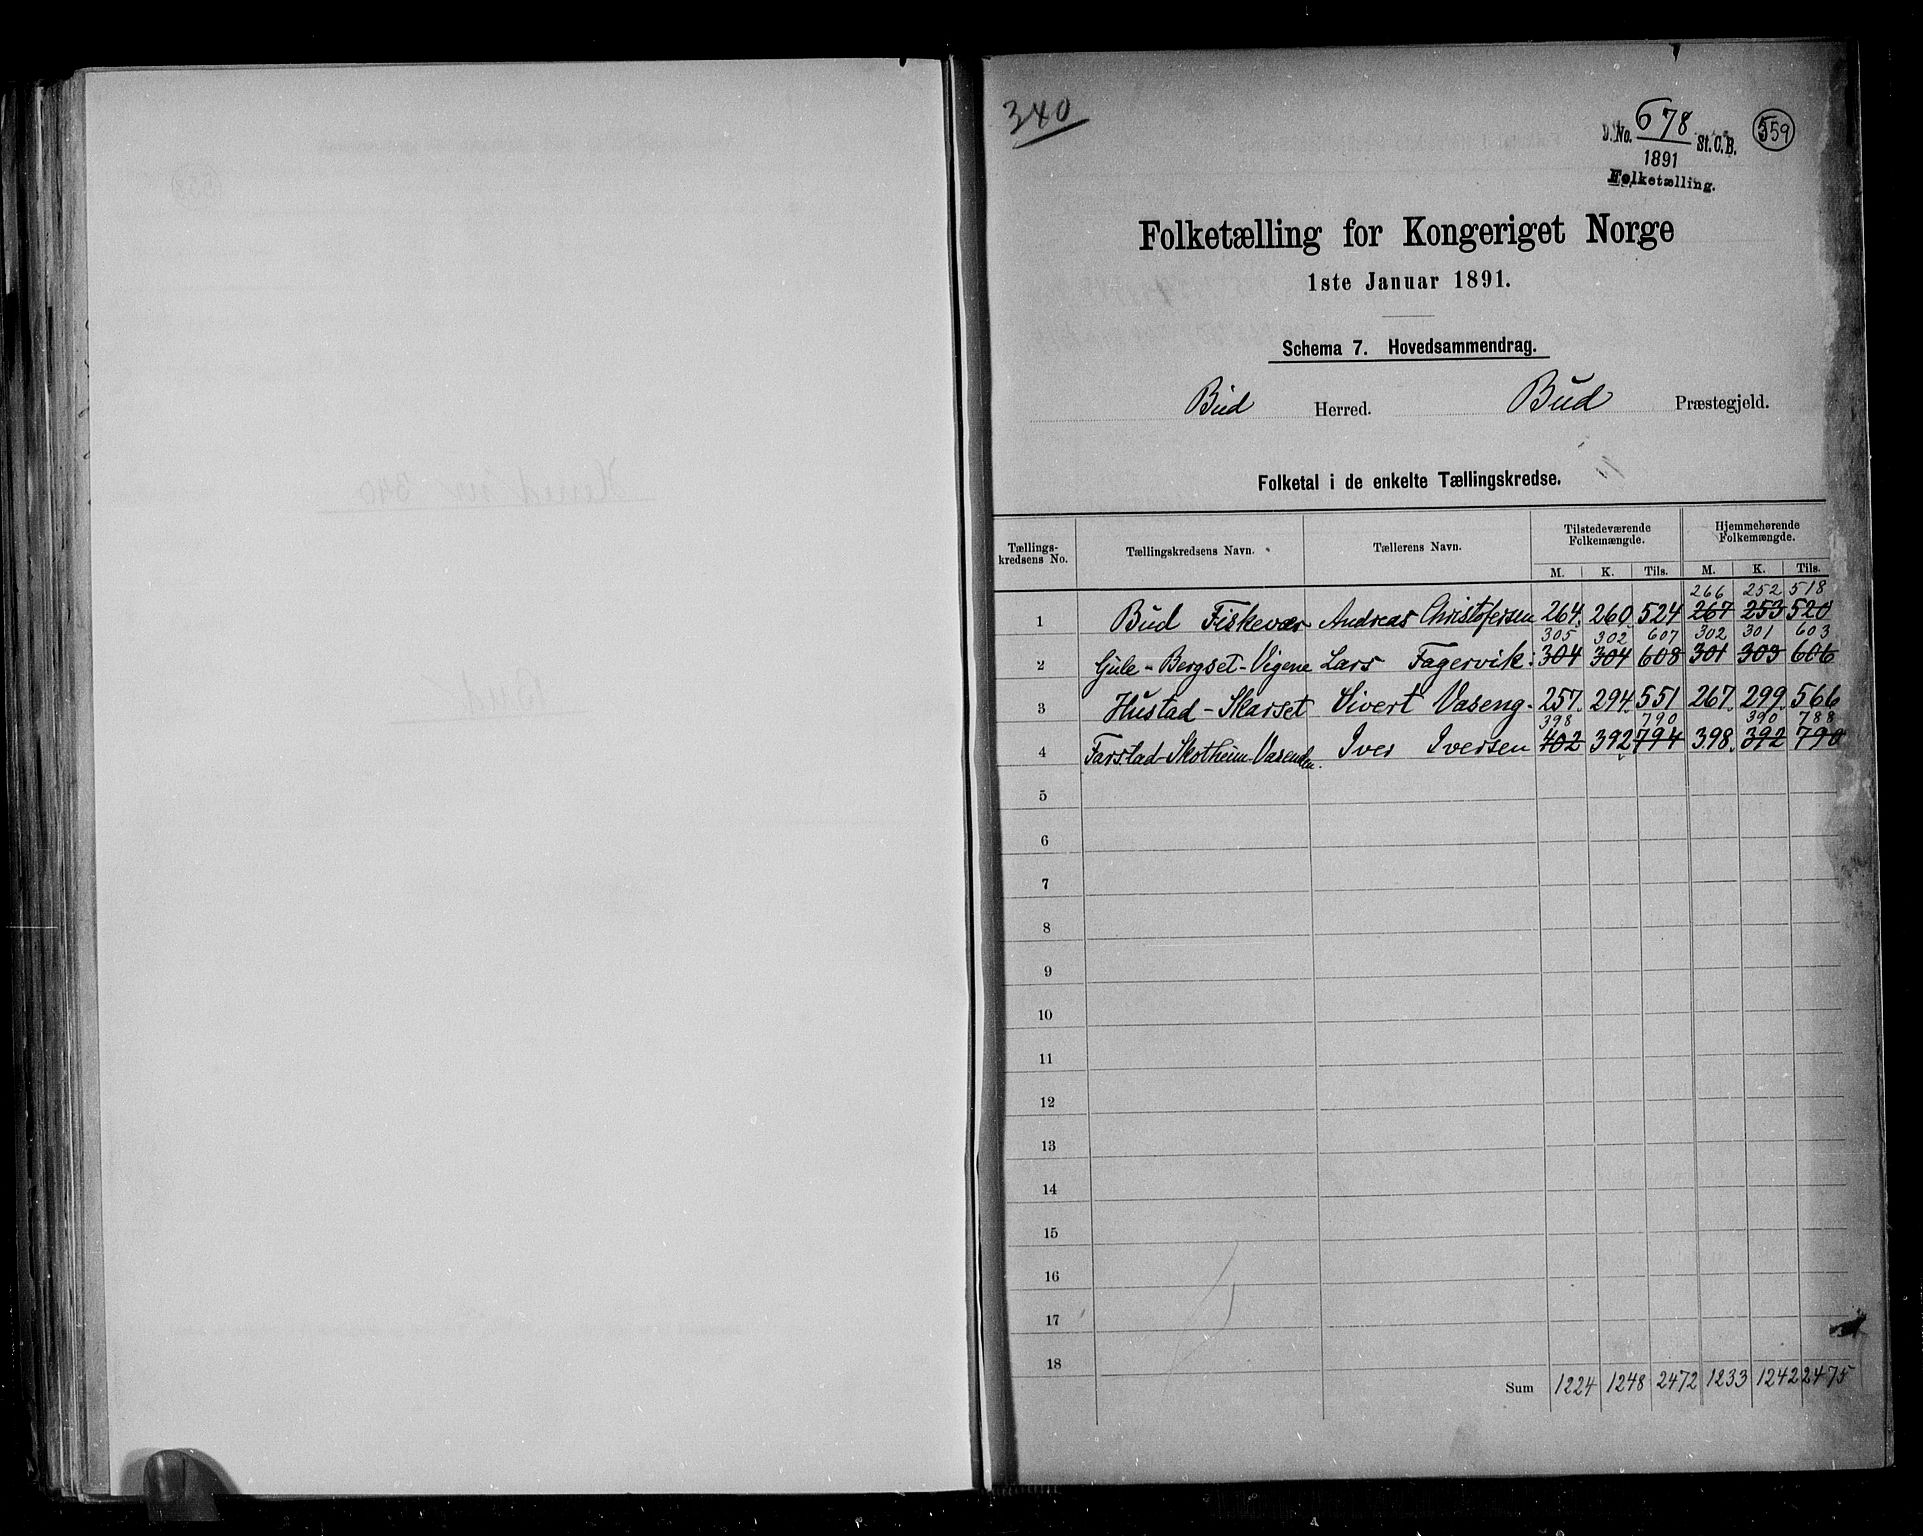 340
D. No. 678 St. C. B. 559
1891
Folketælling.
Folketælling for Kongeriget Norge
1ste Januar 1891.
Schema 7. Hovedsammendrag.
Bud Herred. Bud Præstegjeld.
Folketal i de enkelte Tællingskredse.
Tællingskredsens No. Tællingskredsens Navn. Tællerens Navn. Tilstedeværende Folkemængde. Hjemmehørende Folkemængde.
M. K. Tils. M. K. Tils.
266 252 518
1 Bud Fiskevær Andreas Christofersen 264. 260. 524 267 253 520
305 302 607 302 301 603
2 Gule-Bergset-Vigene Lars Fagervik. 304 304 608 301 303 606
3 Hustad-Skarset Sivert Vaseng. 257. 294. 551 267. 299. 566
398 790 390 788
4 Farstad-Skotheim-Vasenden. Iver Iversen 402 392 794 398. 392 790
5
6
7
8
9
10
11
12
13
14
15
16
17
18
Sum 1224 1248 2472 1233 1242 2475